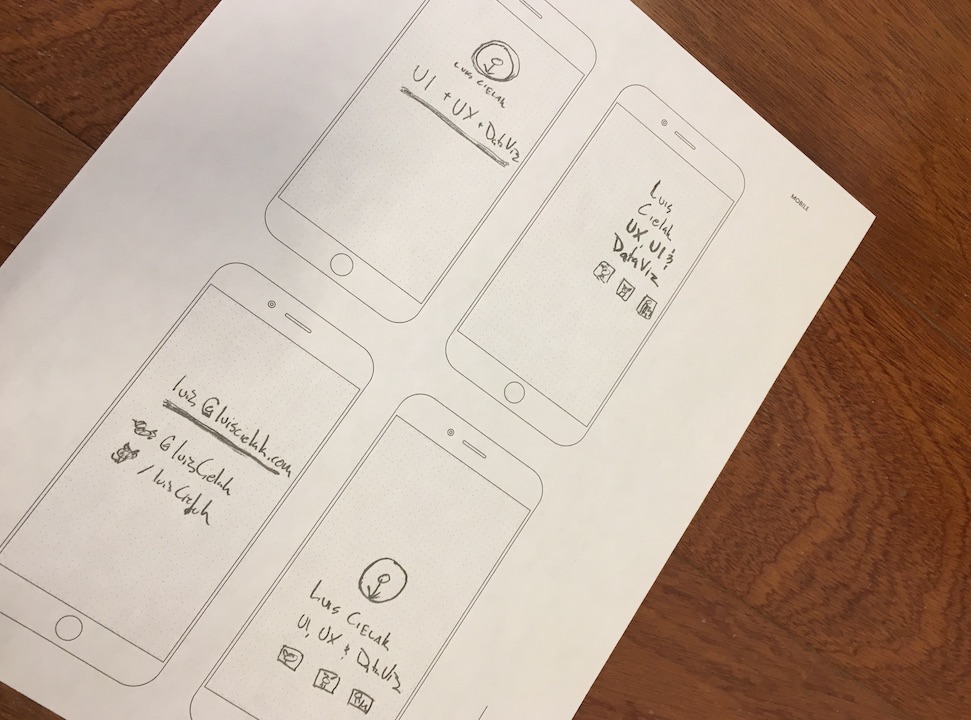 LUIS CIELAK
UI + UX + DataViz
Luis
Cielak
UX, UI &
DataViz
MOBILE
luis@luiscielak.com
@luisCielak
/luisCielak
LUIS CIELAK
UI, UX & DataViz